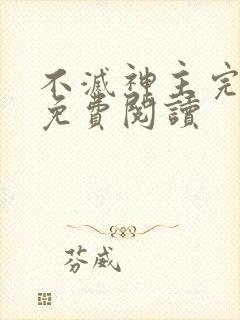 不滅神主完
免費閱讀
芬威